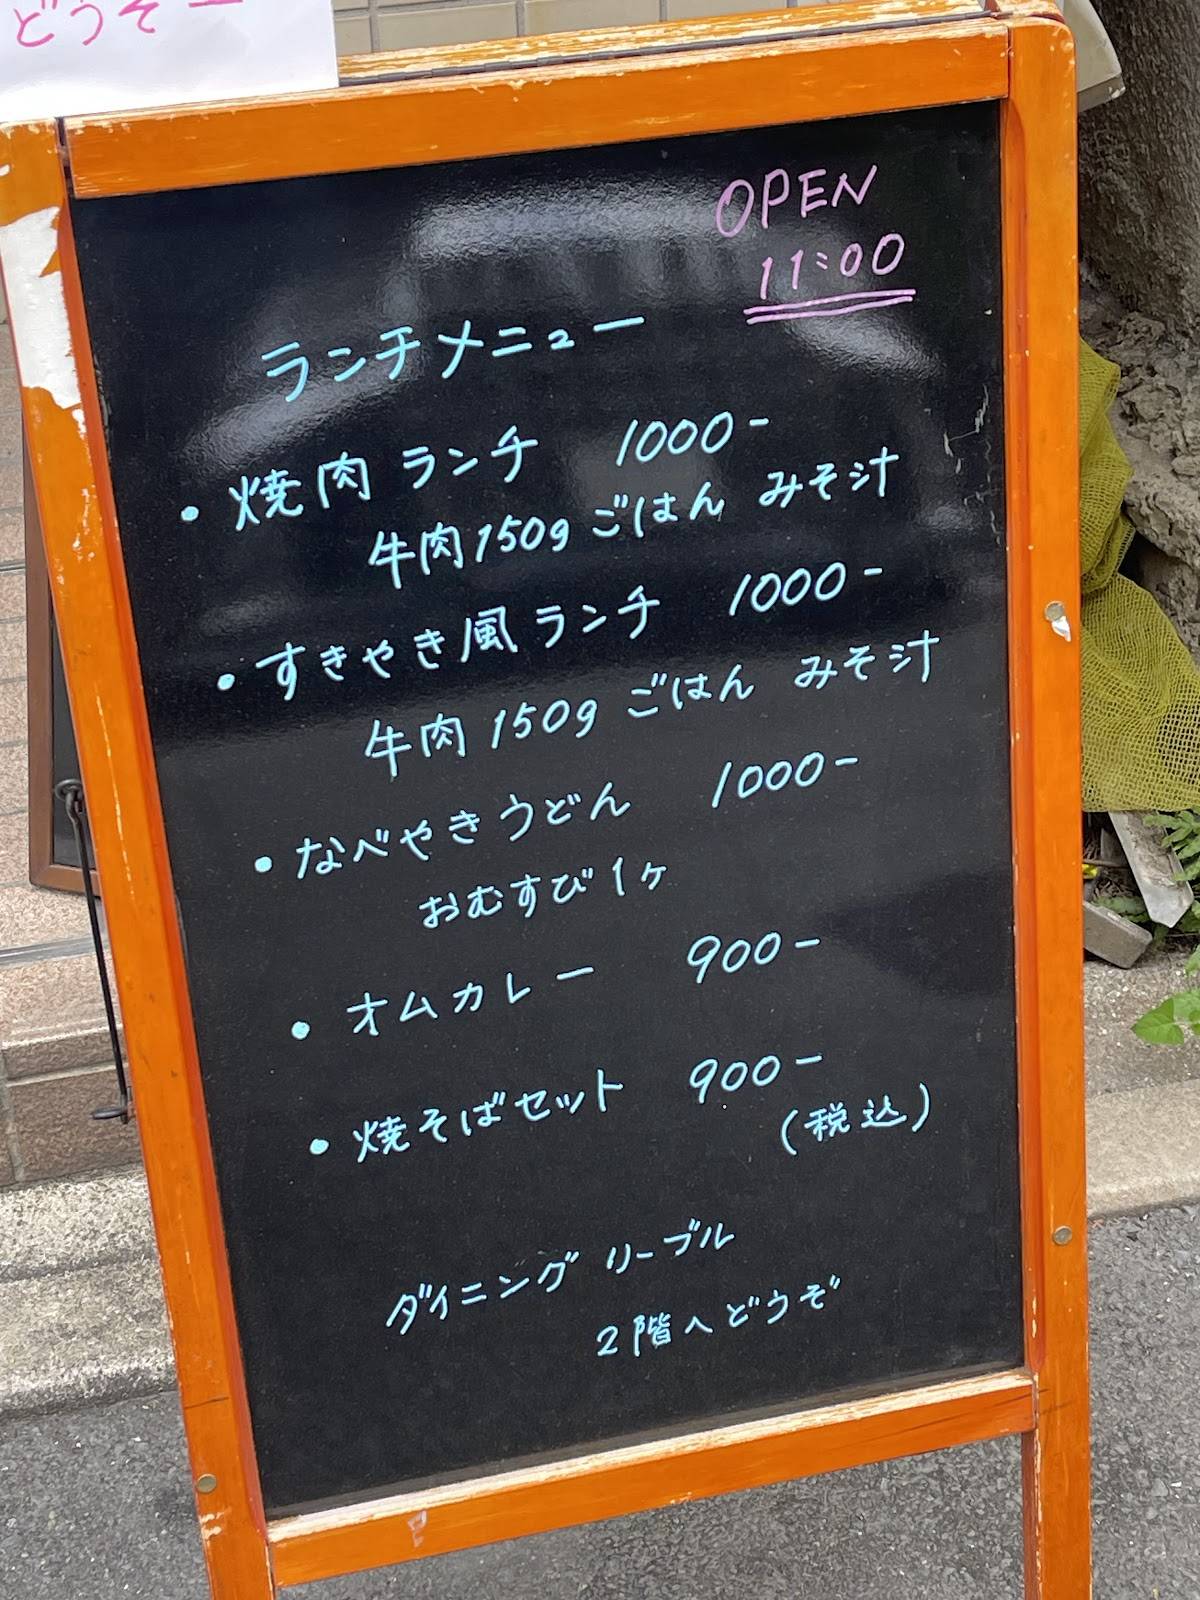 どうぞー
OPEN
11:00
ランチメニュー
・焼肉ランチ 1000-
牛肉150g ごはん みそ汁
・すきやき風ランチ 1000-
牛肉150g ごはん みそ汁
・なべやきうどん 1000-
おむすび1ヶ
・オムカレー 900-
・焼そばセット 900-
(税込)
ダイニング リーブル
2階へどうぞ